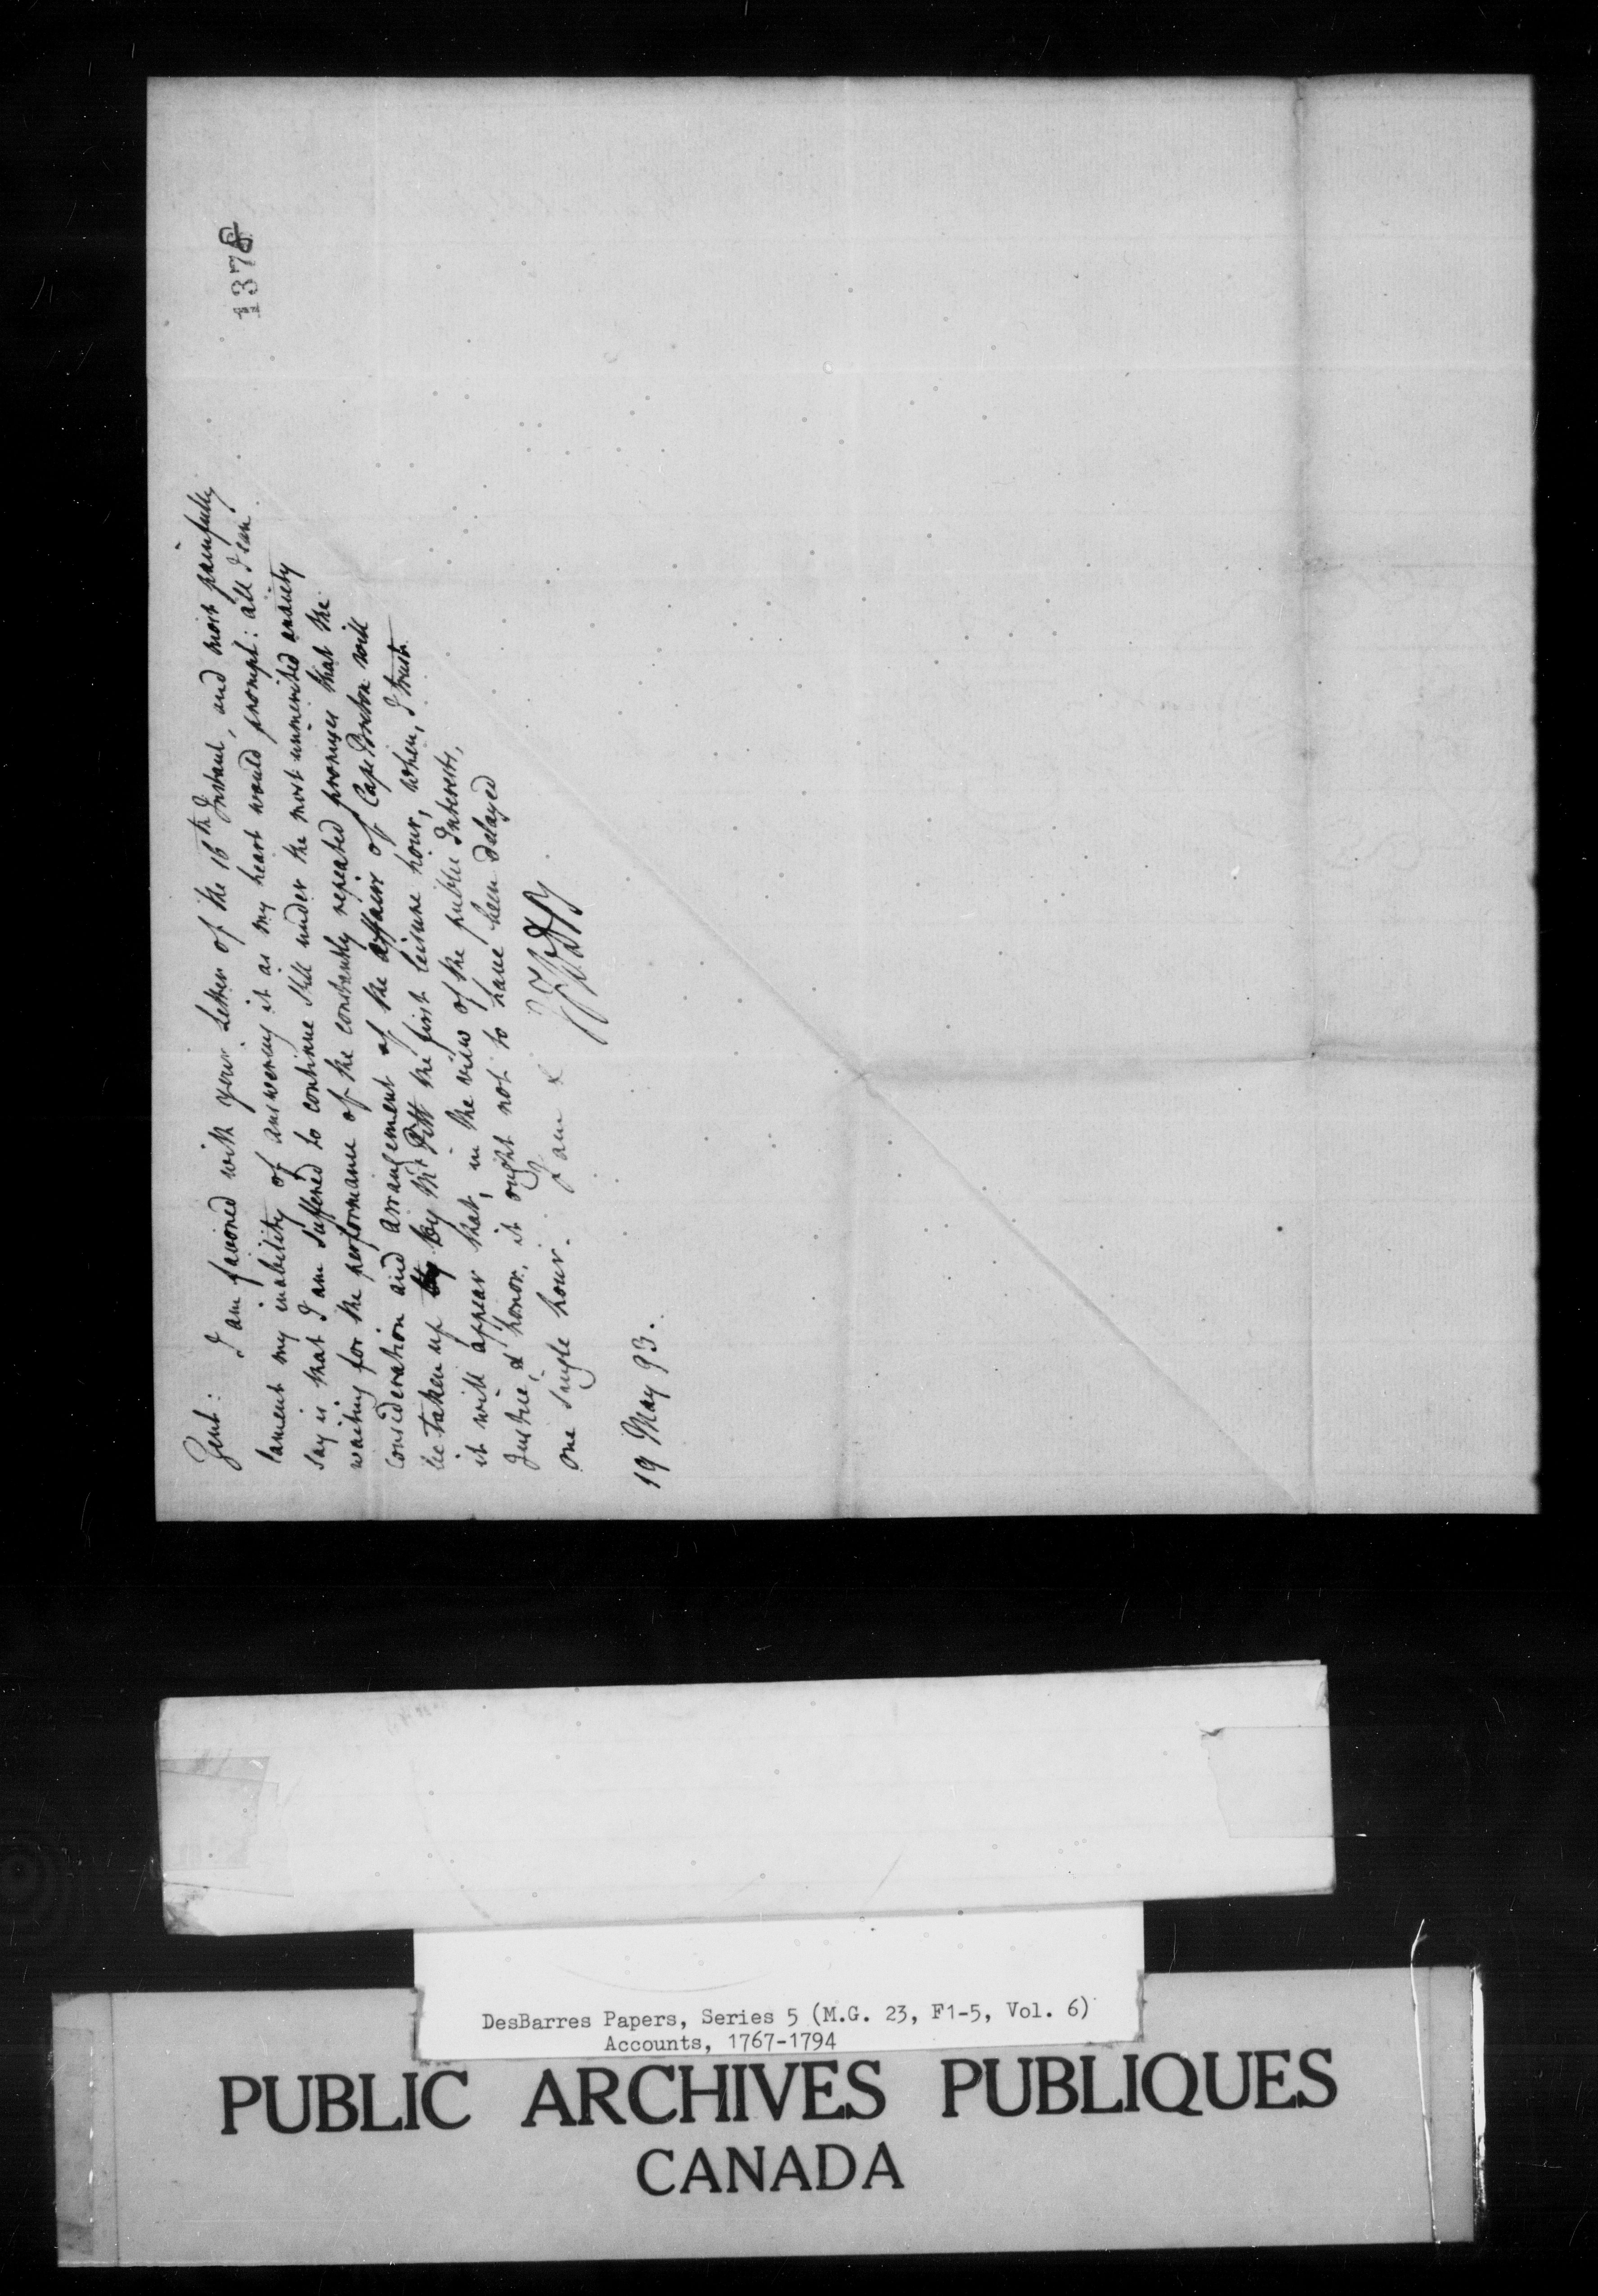 1378
Gent:
I am favored with your Letter of the 16th Instant, and most painfully
lament my inability of answering it as my heart would prompt: all I can
say is that I am suffered to continue still under the most unmerited anxiety
waiting for the performance of the constantly repeated promises that the
Consideration and arrangement of the affairs of Cape Breton will
be taken up by by Mr Pitt the first leisure hour, when, I trust
it will appear that, in the view of the public Interests,
Justice, & honor, it ought not to have been delayed
one single hour. I am &
19 May 93.
DesBarres Papers, Series 5 (M.G. 23, F1-5, Vol. 6)
Accounts, 1767-1794
PUBLIC ARCHIVES PUBLIQUES
CANADA